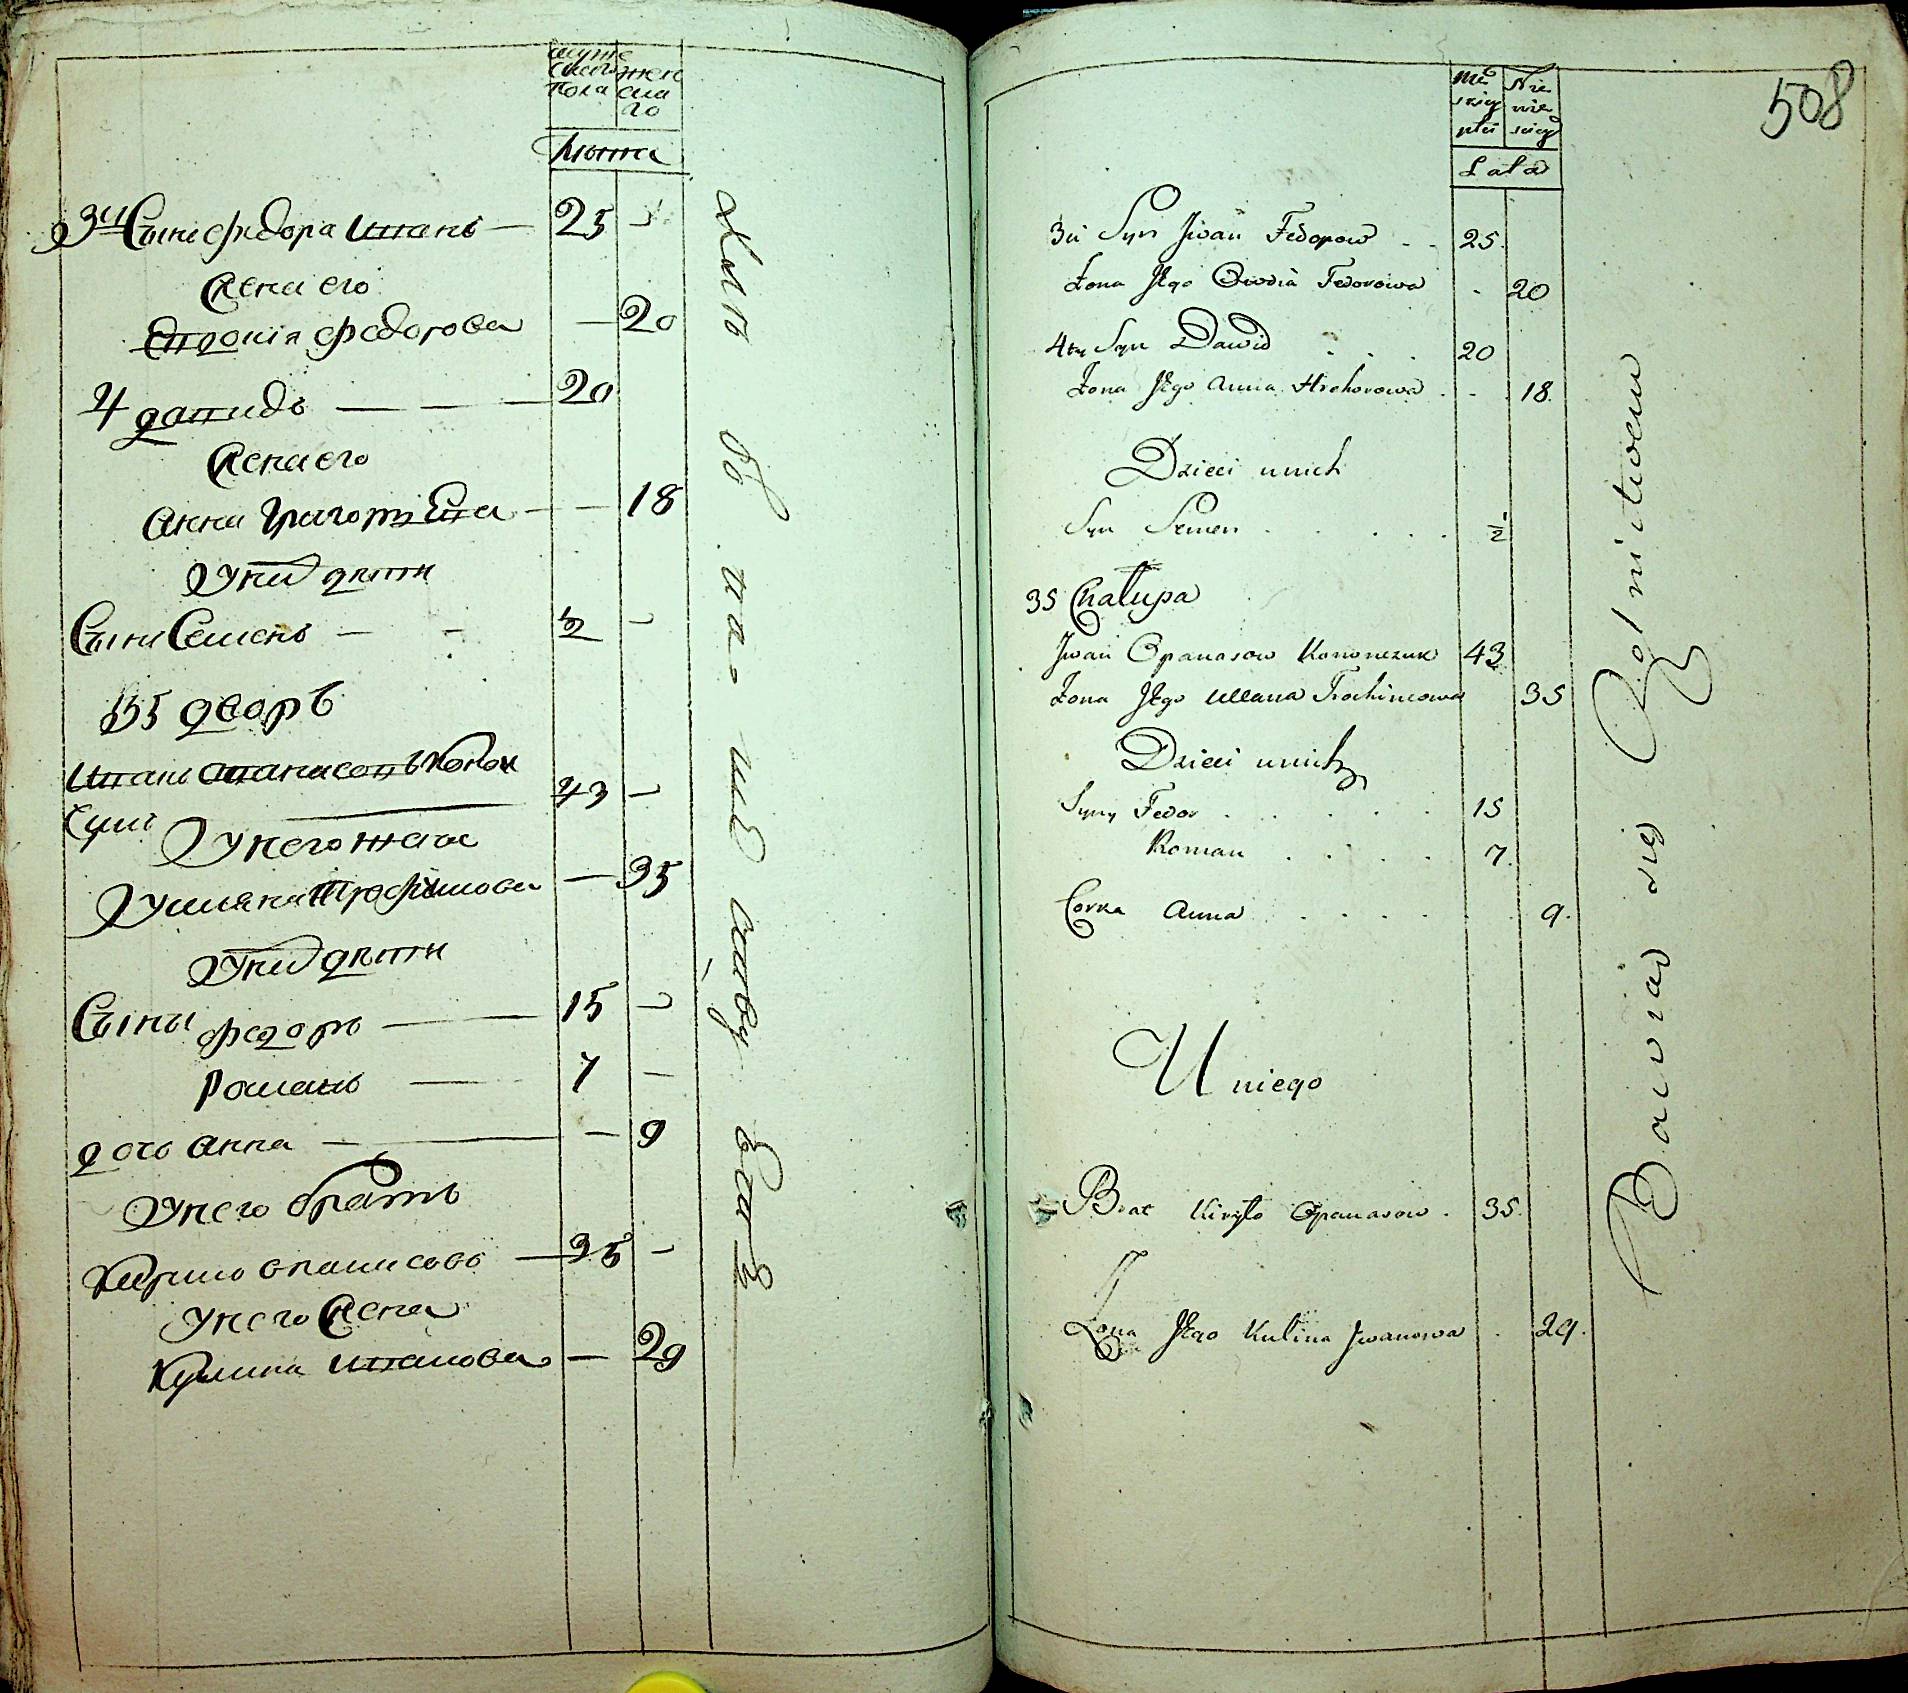 муже
скаго
пола
жен
ска
го
лѣта
3й Сынъ Федора Иванъ — 25 —
Жена его
Евдокия Федорова — 20
4 Давидъ — — — 20
Жена его
Анна Григорьева — — 18
У них дѣти
Сынъ Семенъ — - ½ —
35 дворъ
Иванъ Апанасовъ Конон
чукъ 43 —
У него жена
Ульяна Трофимова — 35
У них дѣти
Сыны Федоръ — 15 —
Романъ — 7 —
дочь Анна — — 9
У него братъ
Кирило Опанасовъ — 35 —
У него жена
Кулина Иванова — 29
Хлѣб
508
Mę
skiey
płci
Nie
wie
sciey
Lata
3ci Syn Jwan Fedorow - - 25.
Żona Jego Owdia Fedorowa . 20
4ty Syn Dawid . . . 20
Żona Jego Anna Hrehorowa . - . 18.
Dzieci unich
Syn Semen . . . . ½
35 Chałupa
Jwan Opanasow Kononczuk 43
Żona Jego Ullana Trochimowa 35
Dzieci unich
Syny Fedor . . . . . 15
Roman . . . . 7.
Corka Anna . . . . . . 9.
U niego
Brat Kiryło Opanasow . 35.
Żona Jego Kulina Jwanowa . 29.
Bawiąc się Rolnictwem